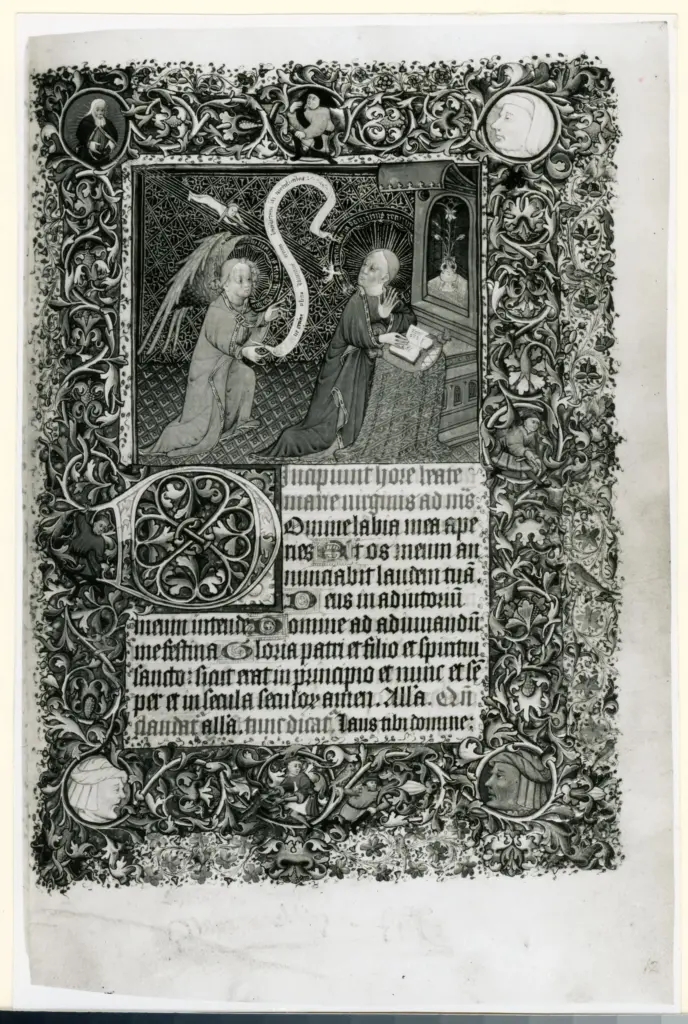 Incipiunt hore beate
marie virginis ad m̅s.
Domine labia mea ape
ries Et os meum an
nunciabit laudem tuā.
Deus in adiutoriū
meum intende Domine ad adiuuandū
me festina Gloria patri et filio et spiritui
sancto: sicut erat in principio et nunc et sē
per et in secula seculoꝝ amen. Alľa. Qn̄
claudat̉ alľa. tunc dicat̉. Laus tibi domine: